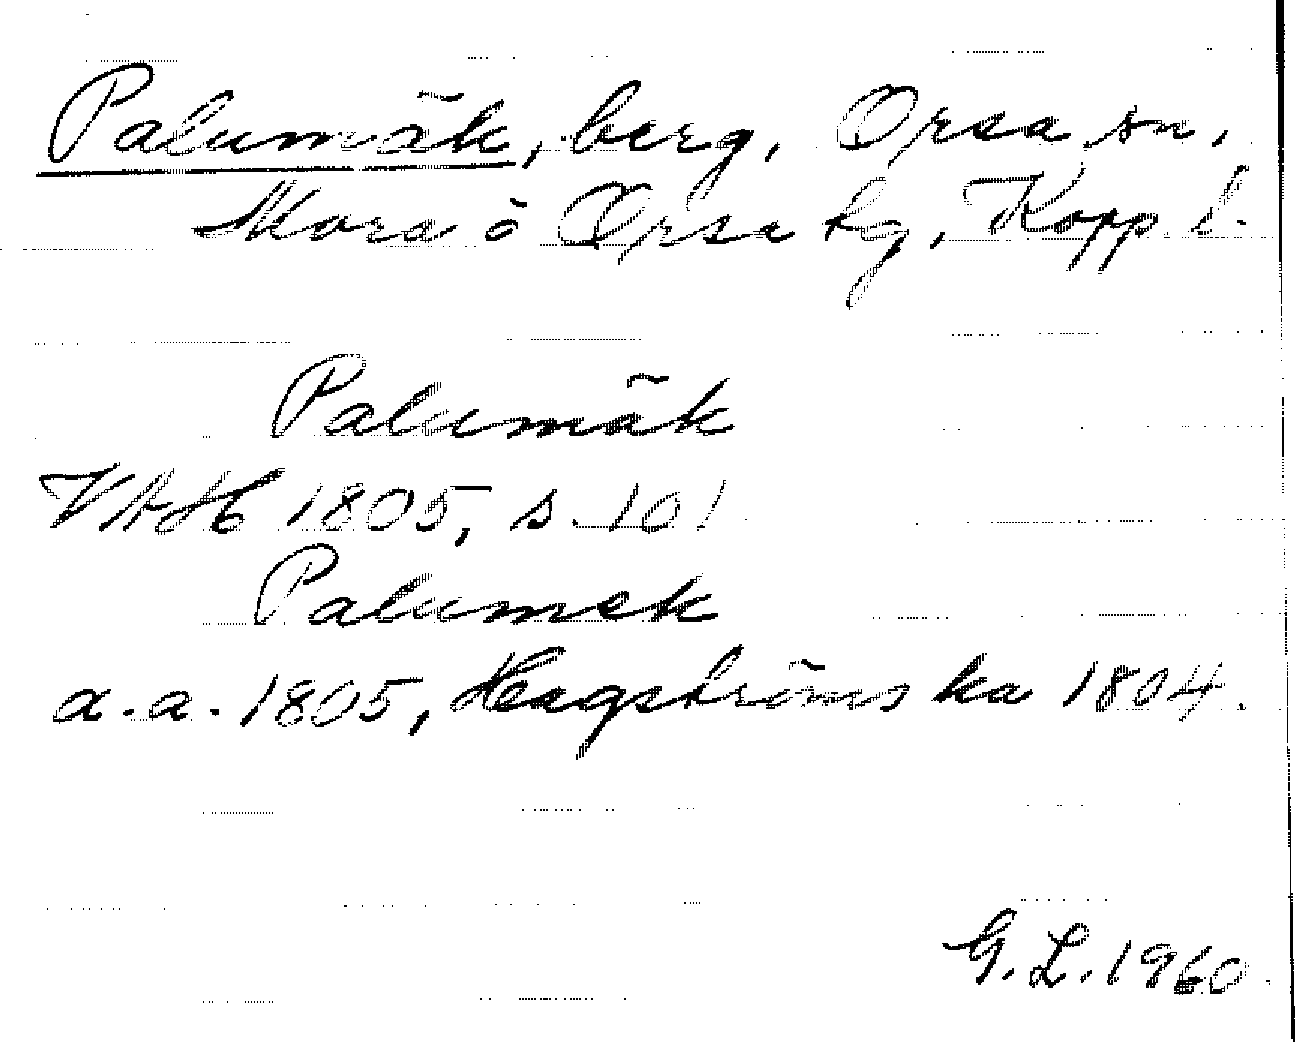 Palumäk, berg, Orsa sn,
Mora o Orsa tg, Kopp. l.
Palumäk
VAH 1805, s. 101
Palumek
a.a. 1805, Hagströms ka 1804.
G. L. 1960.